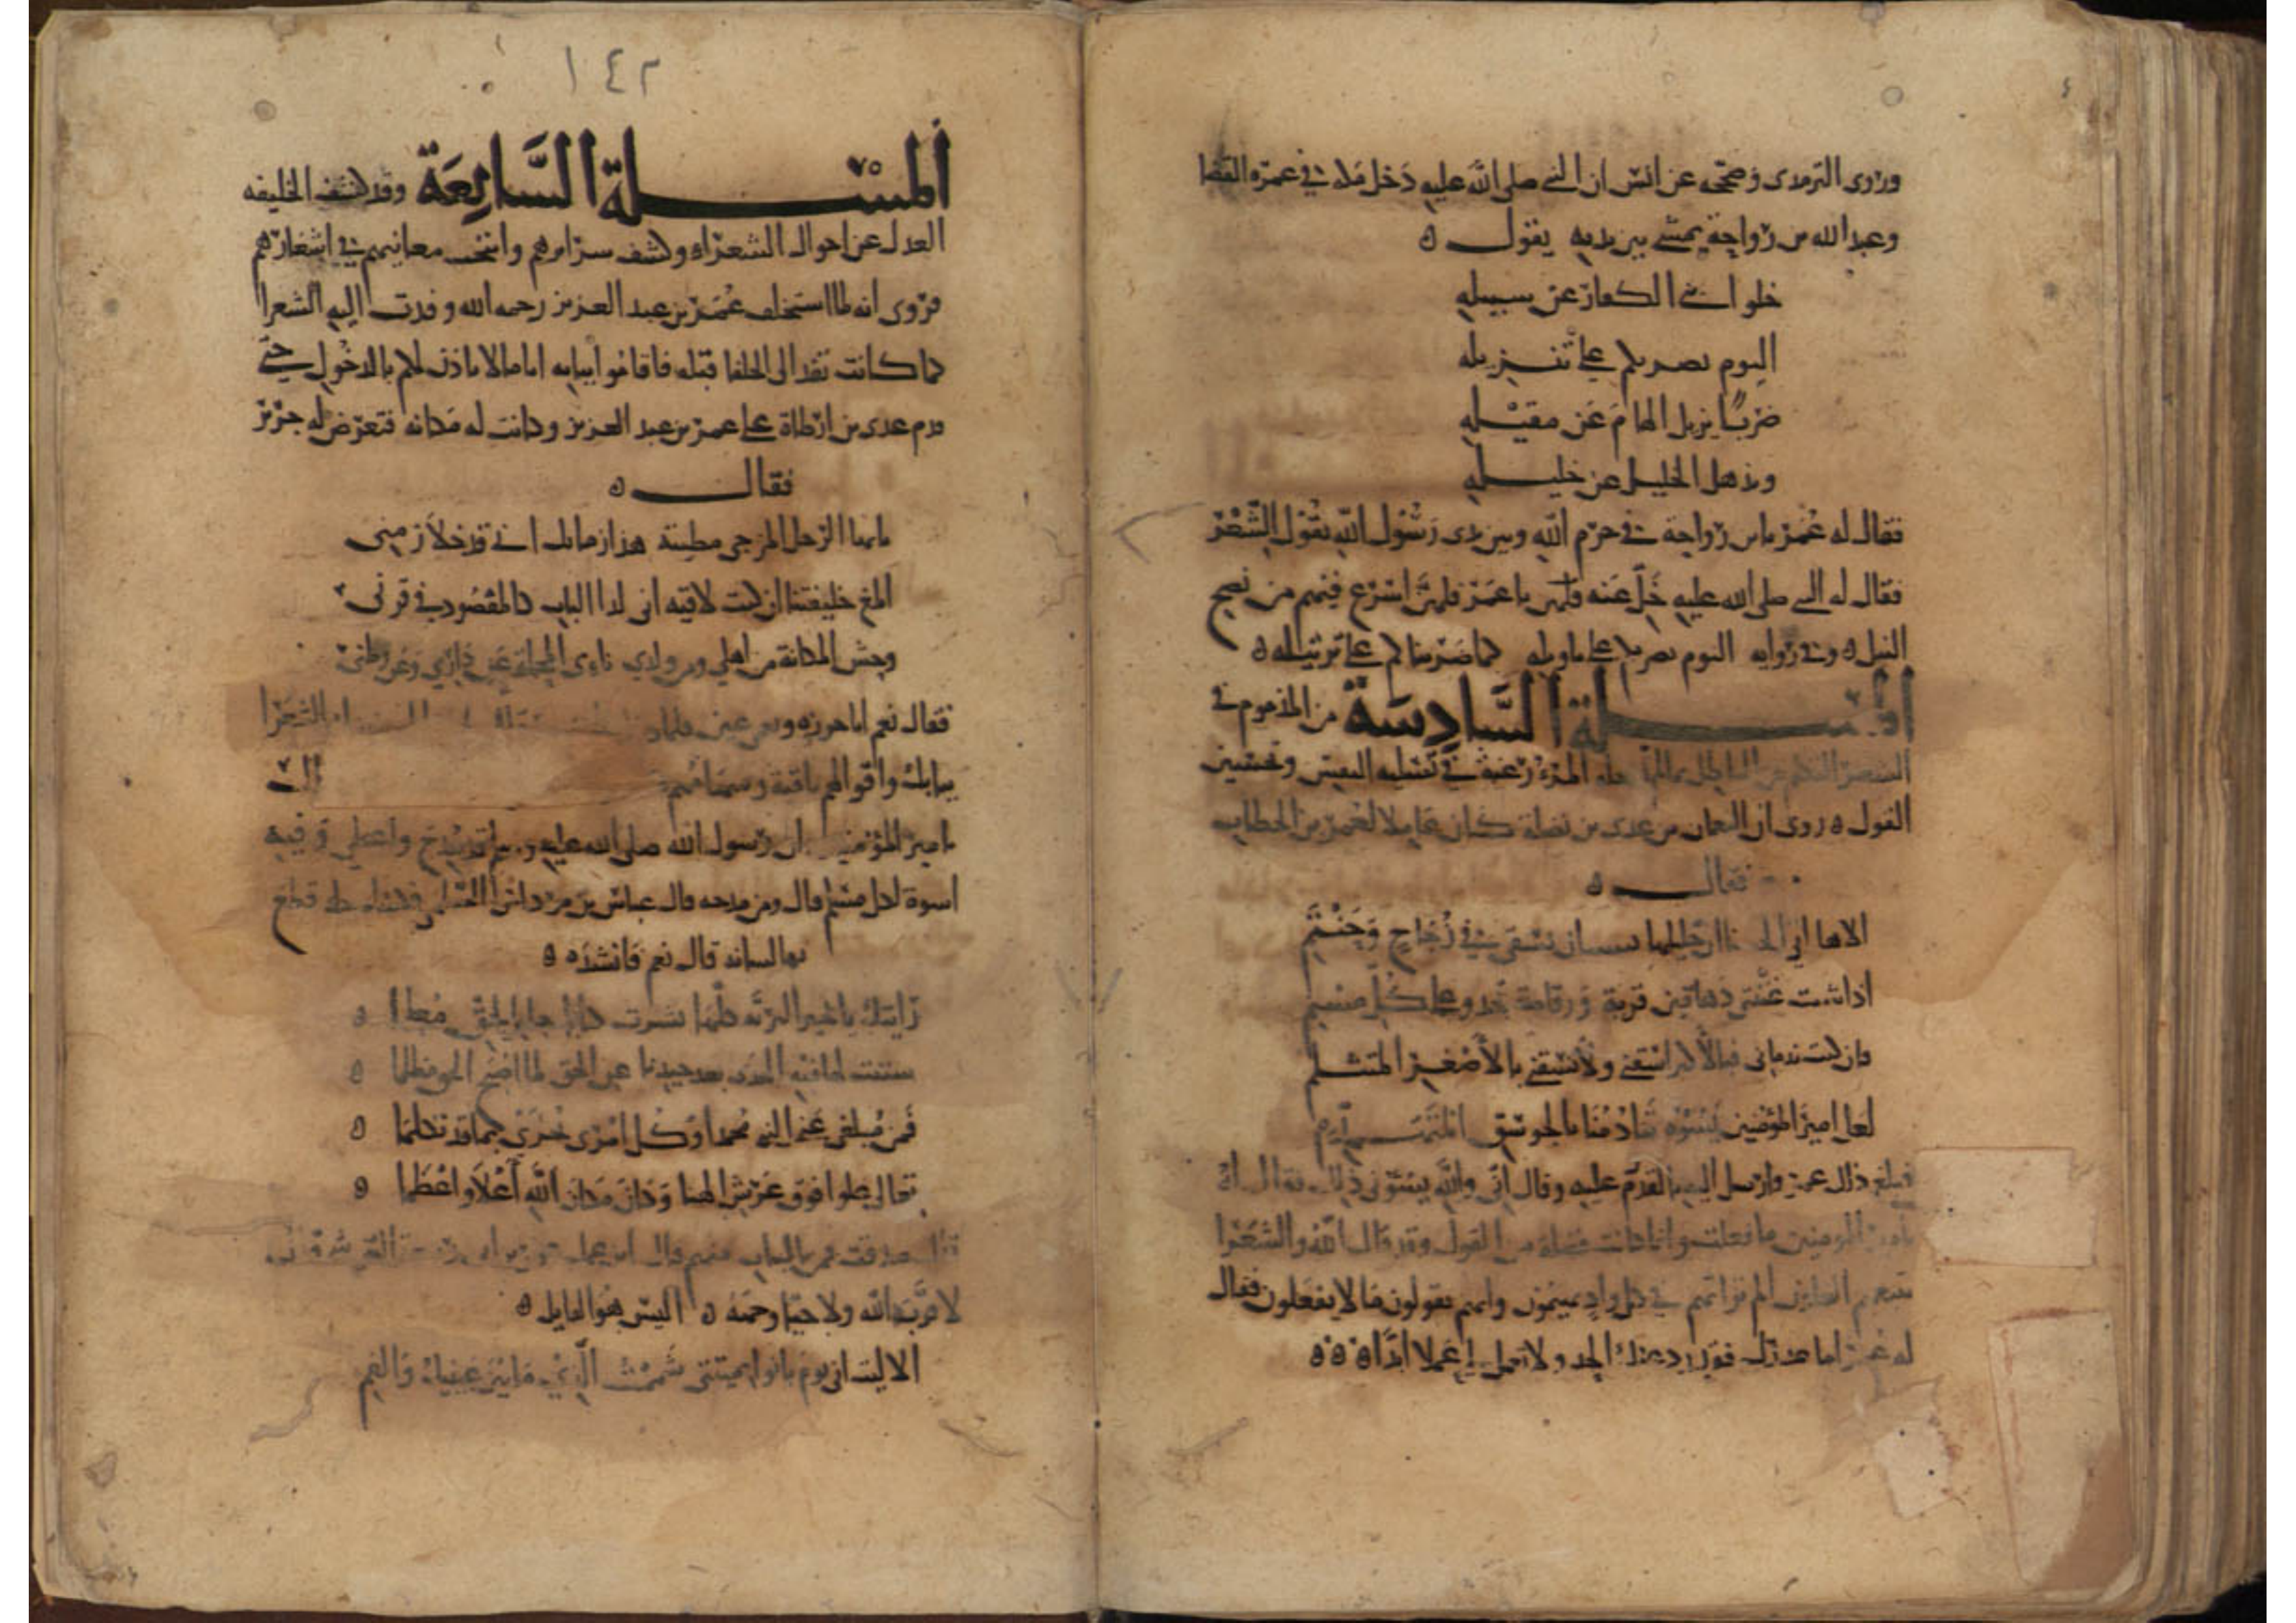 وروى الترمذى وصححه عن انس ان النبي صلى الله عليه دخل مكة في عمرة القضا
وعبد الله بن رواحة يمشي بين يديه يقول ه
خلوا بني الكفار عن سبيله
اليوم نضربكم على تنزيله
ضربًا يزيل الهام عن مقيله
ويذهل الخليل عن خليله
فقال له عمر يابن رواحة في حرم الله وبين يدى رسول الله يقول الشعر
فقال له النبي صلى الله عليه خل عنه يا عمر فلهي اسرع فيهم من نضح
النبل ه وفي رواية اليوم نضربكم على تاويله كما ضربناكم على تنزيله ه
المسلة السادسة من المذموم في
الشعر التكلم من الباطل بما لم المرء رغبة في تسلية النفس وتحسين
القول ه روى ان النعمان بن عدى بن نضلة كان عاملا لعمر بن الخطاب
فقال ه
الا هل اتى ان خليلها بميسان يسقى في زجاج وحنتم
اذا شئت غنتني دهاقين قرية ورقاصة تجدو على كل منسم
فان كنت ندمانى فبالاكبر اسقني ولا تسقني بالأصغر المتثلم
لعل امير المؤمنين يسوه تنادمنا بالجوسق المتهدم
فبلغ ذلك عمر فارسل اليه بالقدوم عليه وقال اني والله يسوني ذلك فقال
يا امير المومنين ما فعلت وانما كانت فضلة من القول وقد قال الله والشعرا
يتبعهم الغاون الم تر انهم في كل واد يهيمون وانهم يقولون ما لا يفعلون فقال
له عمر اما عذرك فقد درا عنك الحد ولا تعمل لي عملا ابدًا ه ه ه
١٤٢
المسلة السابعة وقد كشف الخليفه
العدل عن احوال الشعراء وكشف سرائرهم وانتخب معانيهم في اشعارهم
فروى انه لما استخلف عمر بن عبد العزيز رحمه الله وفدت اليه الشعرا
كما كانت تفد الى الخلفا قبله فاقاموا ببابه اياما لا ياذن لهم بالدخول حتى
قدم عدى بن ارطاة على عمر بن عبد العزيز وكانت له مكانة فتعرض له جرير
فقال ه
يايها الرجل المزجى مطيته هذا زمانك انى قد خلا زمنى
ابلغ خليفتنا ان كنت لاقيه انى لدا الباب كالمصفود في قرنى
وحش المكانة من اهلي ومن ولدى ناءى المحلة عن داري وعن وطنى
فقال نعم ابا حرزة ونعمى عين فلما دخل الشعرا
ببابك واقوالهم باقية وسهامهم
يامير المؤمنين ان رسول الله صلى الله عليه قد مدح واعطى وفيه
اسوة لكل مسلم قال ومن مدحه قال عباس بن مرداس السلمي فكساه حلة قطع
بها لسانه قال نعم فانشده ه
رايتك يا خير البرية كلها نشرت كتابا جا بالحق معلما ه
سننت لنا فيه الهدى بعد جيدنا عن الحق لما اصبح الحق مظلما ه
فمن مبلغ عني النبي محمدا وكل امرى يجزى بما قد تكلما ه
تعالى علوا فوق عرش الهنا وكان مكان الله أعلا واعظما ه
قال صدقت فمن بالباب منهم قال ابن عمك عمر بن ابي ربيعة القرشي قال
لا قربه الله ولا حيا وجهه ه اليس هو القايل ه
الا ليت انى يوم بانوا بميتتى شممت الذي ما بين عينيك والفم